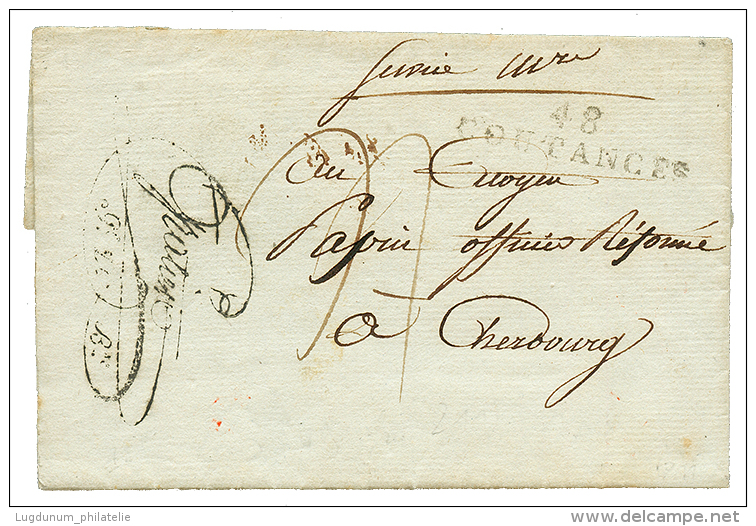 Service mre
48
COUTANCES
au Citoyen
Papin officier Réformé
à Cherbourg
Lugdunum_philatelie
delcampe.net